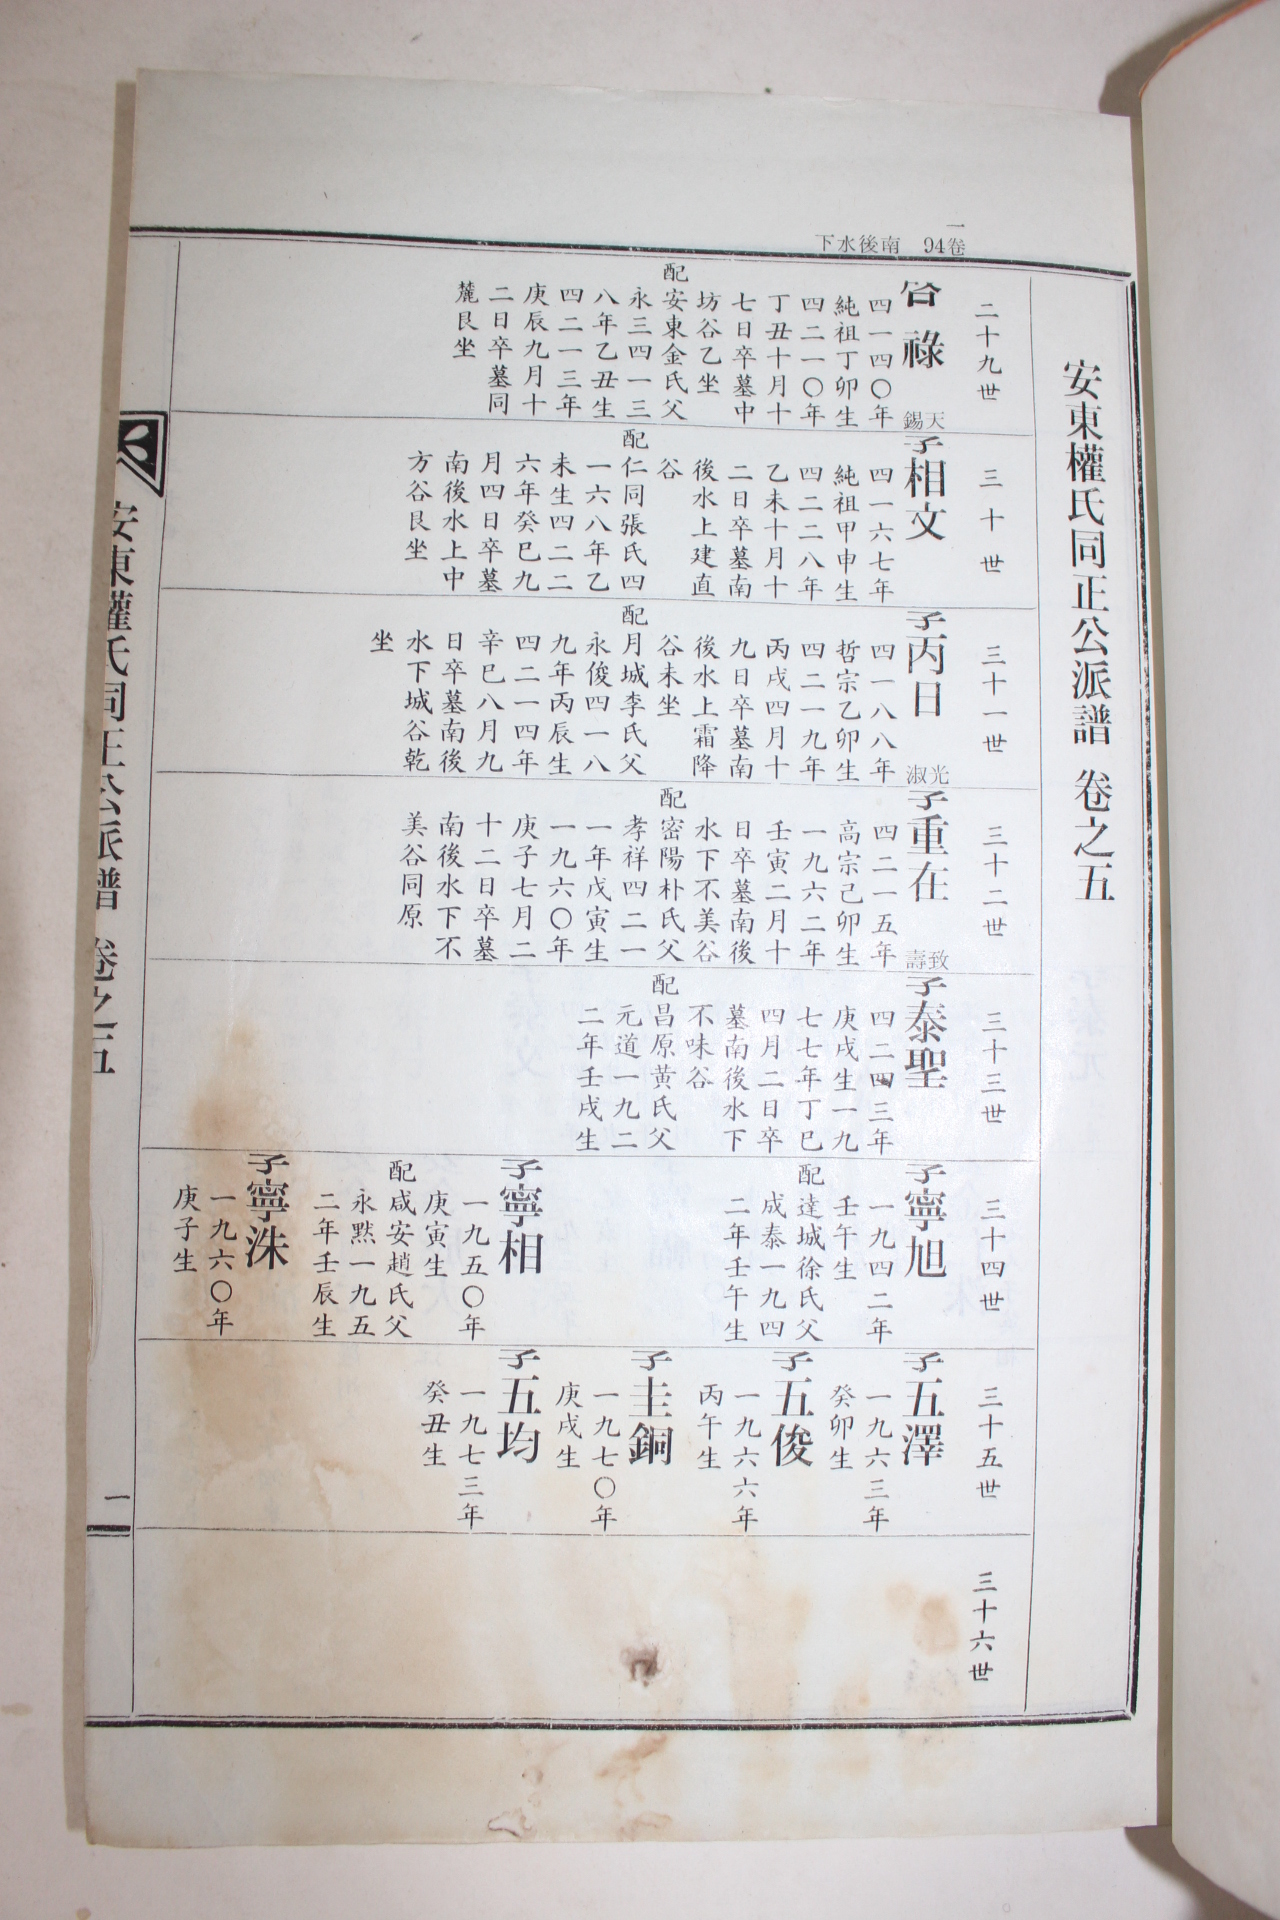 安東權氏同正公派譜 卷之五
一卷94 南後水下
二十九世
祿
四一四〇年
純祖丁卯生
四二一〇年
丁丑十月十
七日卒墓中
坊谷乙坐
配安東金氏父
永三四一三
八年乙丑生
四二一三年
庚辰九月十
二日卒墓同
麓艮坐
三十世
天錫
子相文
四一六七年
純祖甲申生
四二二八年
乙未十月十
二日卒墓南
後水上建直
谷
配仁同張氏四
一六八年乙
未生四二二
六年癸巳九
月四日卒墓
南後水上中
方谷艮坐
三十一世
子丙日
四一八八年
哲宗乙卯生
四二一九年
丙戌四月十
九日卒墓南
後水上霜降
谷未坐
配月城李氏父
永俊四一八
九年丙辰生
四二一四年
辛巳八月九
日卒墓南後
水下城谷乾
坐
三十二世
光淑
子重在
四二一五年
高宗己卯生
一九六二年
壬寅二月十
日卒墓南後
水下不美谷
配密陽朴氏父
孝祥四二一
一年戊寅生
一九六〇年
庚子七月二
十二日卒墓
南後水下不
美谷同原
三十三世
致壽
子泰聖
四二四三年
庚戌生一九
七七年丁巳
四月二日卒
墓南後水下
不味谷
配昌原黃氏父
元道一九二
二年壬戌生
三十四世
子寧旭
一九四二年
壬午生
配達城徐氏父
成泰一九四
二年壬午生
子寧相
一九五〇年
庚寅生
配咸安趙氏父
永黙一九五
二年壬辰生
子寧洙
一九六〇年
庚子生
三十五世
子五澤
一九六三年
癸卯生
子五俊
一九六六年
丙午生
子圭銅
一九七〇年
庚戌生
子五均
一九七三年
癸丑生
三十六世
安東權氏同正公派譜 卷之五
一